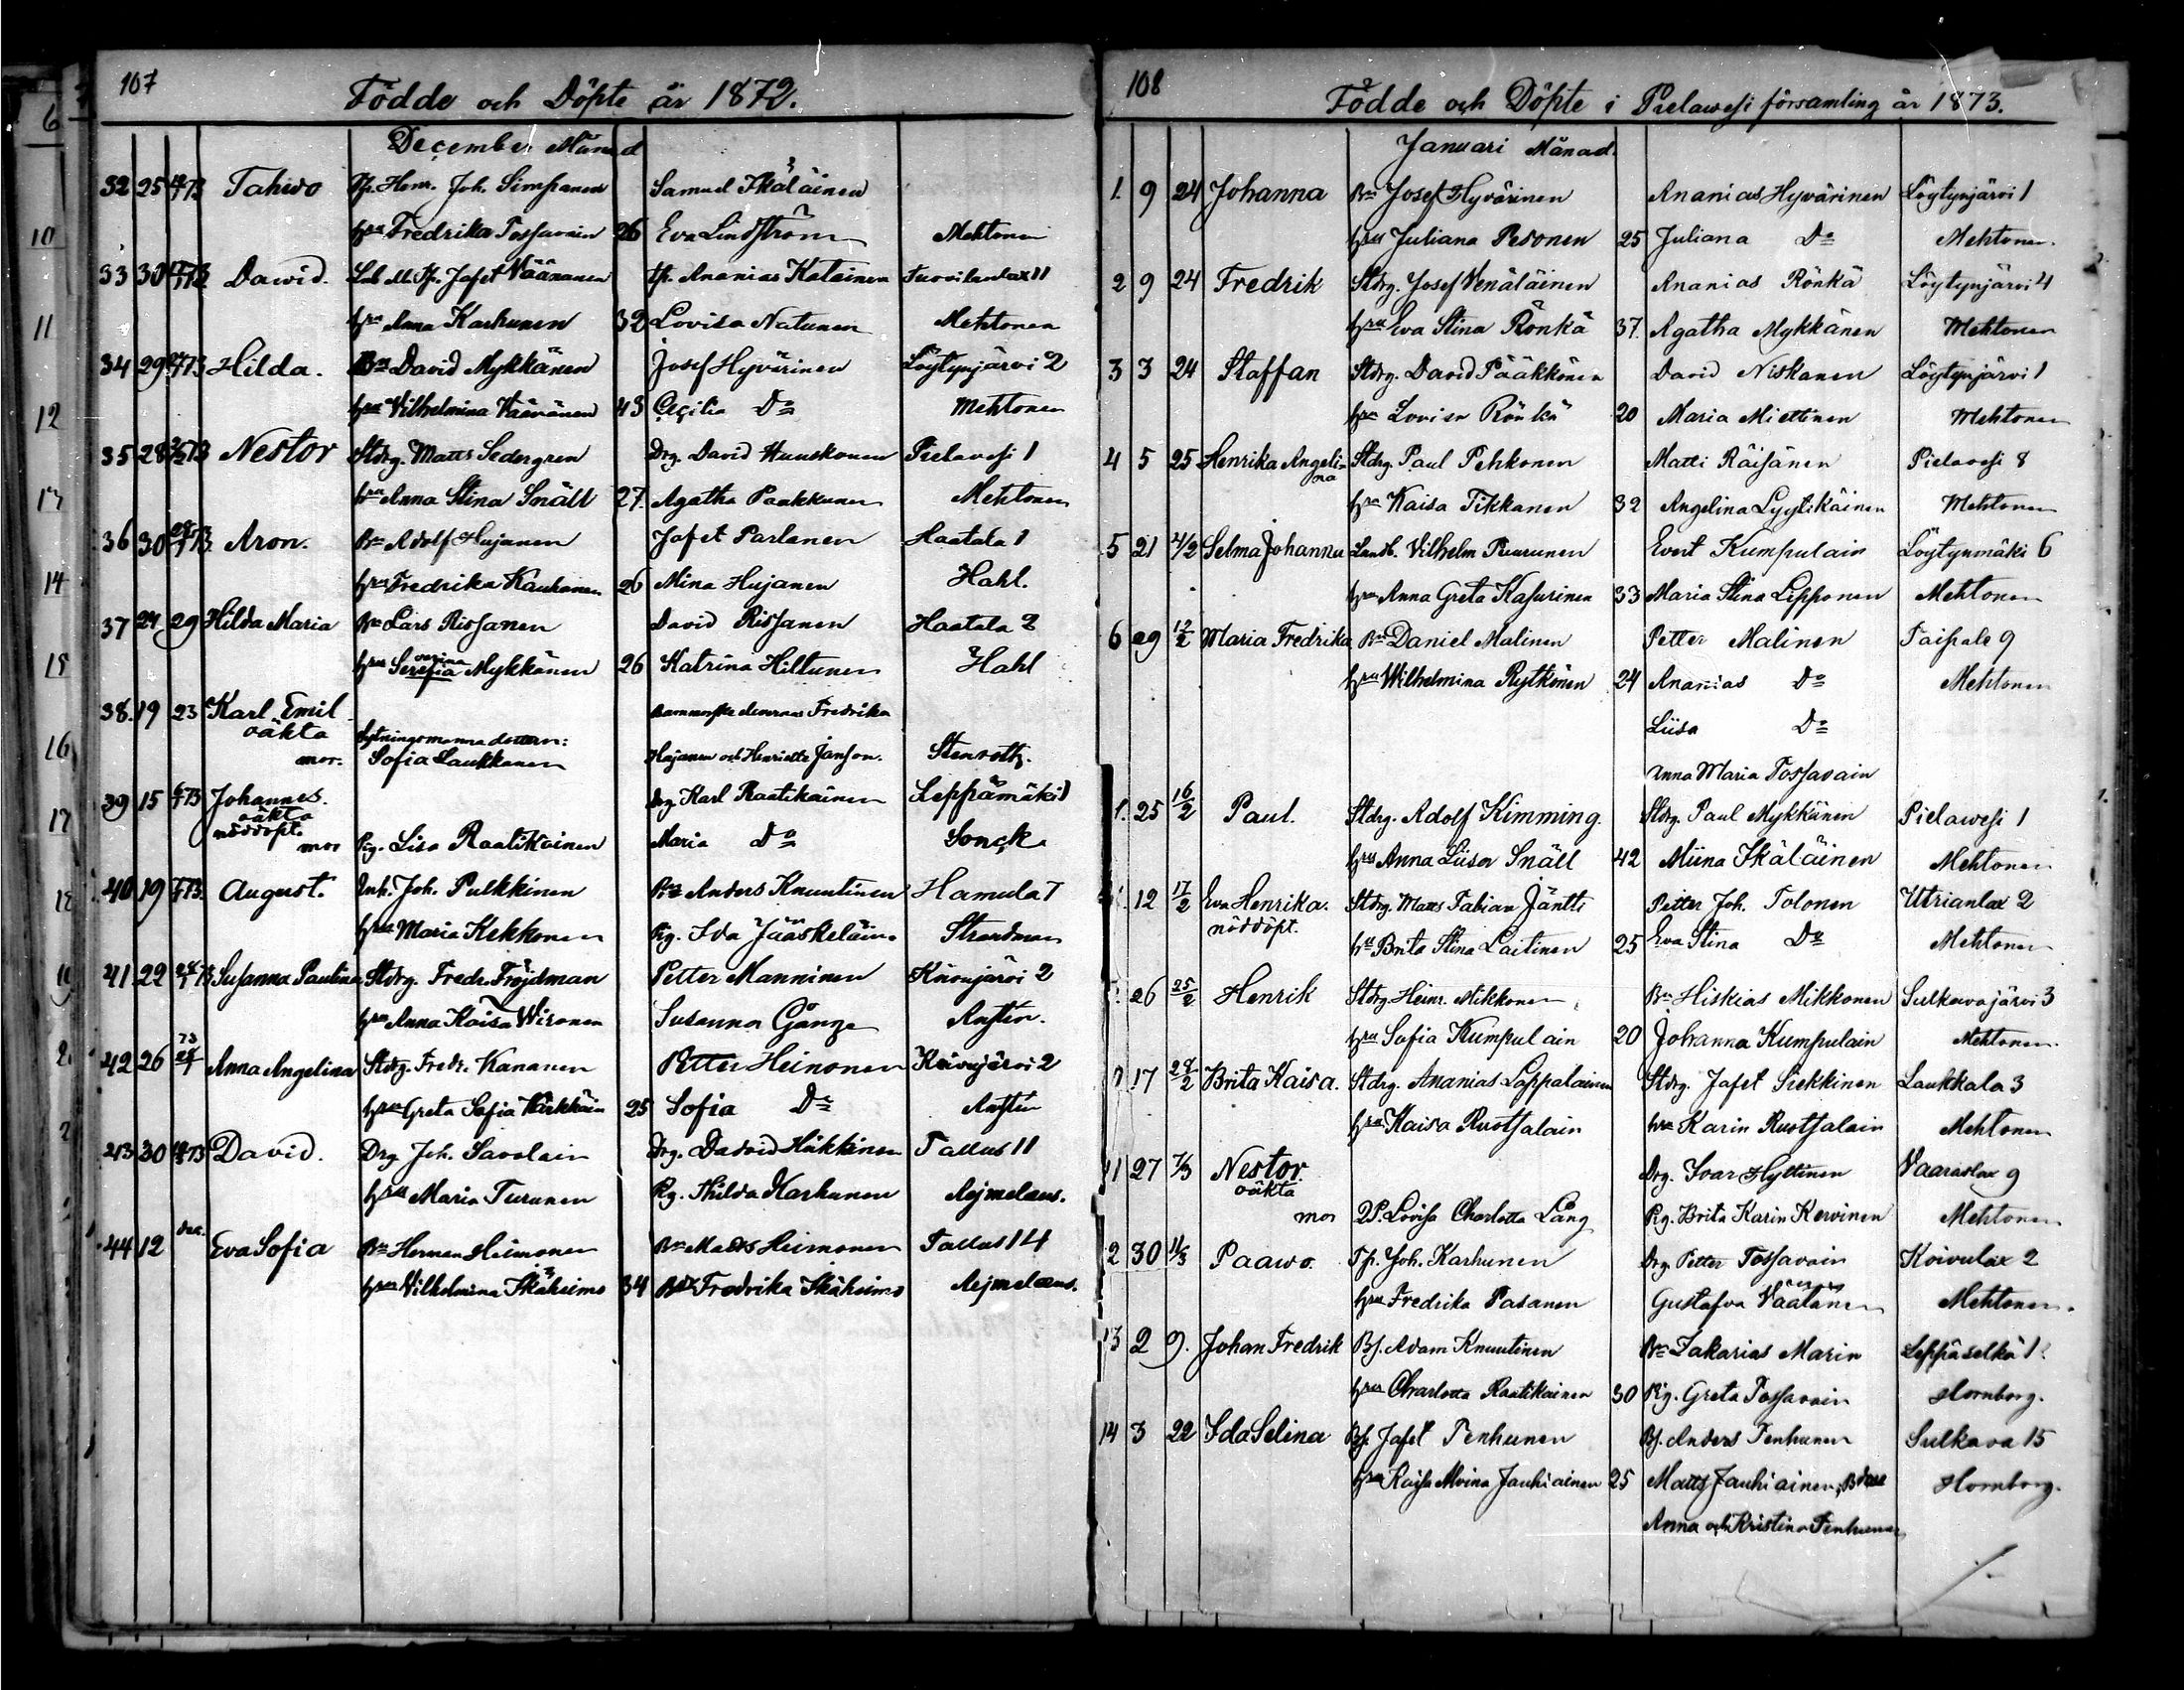 107
Födde och Döpte år 1872.
December Månad
32 25 Tahvo Henr. Joh. Simpanen Samuel Ikäläinen
hru Fredrika Tossavain 26 Eva Lindström Mehtonen
33 30 Dawid. Jafet Väänänen Ananias Katainen Tuovilanlax 11
hru Anna Karhunen 32 Lovisa Natunen Mehtonen
34 29 Hilda. Bn David Mykkänen Josef Hyvärinen Löytynjärvi 2
hru Vilhelmina Väänänen 43 Cecilia Do Mehtonen
35 28 Nestor Stdrg. Matts Sedergren Drg. David Huuskonen Pielavesi 1
hru Anna Stina Snäll 27. Agatha Paakkunen Mehtonen
36 30 28/1 73 Aron. Bn Adolf Hujanen Jafet Parlanen Haatala 1
hru Fredrika Kauhanen 26 Mina Hujanen Hahl.
37 24 29 Hilda Maria Bn Lars Rissanen David Rissanen Haatala 2
hru Serafia Mykkänen 26 Katrina Hiltunen Hahl
38. 19 23 Karl Emil Fredrika
oäkta
mor. Sofia Laukkanen Hujanen och Henriette Janson. Stenroth.
39 15 Johannes. Drg Karl Raatikainen Leppämäki 1
oäkta
nöddöpt.
mor Pig. Lisa Raatikainen Maria Do Sonck
40 19 August. Inh. Joh. Pulkkinen Bn Anders Knuutinen Hamula 7
hru Maria Kekkonen Pig. Ida Jääskeläin. Strandman
41 22 Susanna Paulina Stdrg. Fredr. Fröjdman Petter Manninen Koivujärvi 2
hru Anna Kaisa Wironen Susanna Gånge Austen.
42 26 Anna Angelina Stdrg. Fredr. Kananen Petter Heinonen Koivujärvi 2
hru Greta Sofia Kärkkäin 25 Sofia Do Austen
43 30 David. Drg Joh. Savolain Drg. David Häkkinen Tallus 11
hru Maria Turunen Pig. Hilda Karhunen Aejmelæus.
44 12 Eva Sofia Bn Herman Heimonen Bn Matts Heimonen Tallus 14
hru Vilhelmina Ikäheimo 34 Fredrika Ikäheimo Aejmelæus.
108
Födde och Döpte i Pielawesi församling år 1873.
Januari Månad.
1. 9 24 Johanna Bn Josef Hyvärinen Ananias Hyvärinen Löytynjärvi 1
hru Juliana Pesonen 25 Juliana Do Mehtonen.
2 9 24 Fredrik Stdrg. Josef Venäläinen Ananias Rönkä Löytynjärvi 4
hru Eva Stina Rönkä 37. Agatha Mykkänen Mehtonen
3 3 24 Staffan Stdrg. David Pääkkönen David Niskanen Löytynjärvi 1
hru Lovisa Rönkä 20 Maria Miettinen Mehtonen
4 5 25 Henrika Angelina Stdrg. Paul Pehkonen Matti Räisänen Pielavesi 8
hru Kaisa Tikkanen 32 Angelina Lyytikäinen Mehtonen
5 21 4/2 Selma Johanna Landb. Vilhelm Puurunen Evert Kumpulain Löytynmäki 6
hru Anna Greta Kasurinen 33 Maria Stina Lipponen Mehtonen
6 29 12/2 Maria Fredrika Bn Daniel Malinen Petter Malinen Taipale 9
hru Wilhelmina Rytkönen 24 Ananias Do Mehtonen
Liisa Do
Anna Maria Tossavain
25 16/2 Paul. Stdrg. Adolf Kimming. Stdrg. Paul Mykkänen Pielawesi 1
hru Anna Liisa Snäll 42 Miina Ikäläinen Mehtonen
12 17/2 Eva Henrika. Stdrg. Matts Fabian Jäntti Petter Joh. Tolonen Utrianlax 2
nöddöpt.
hru Brita Stina Laitinen 25 Eva Stina Do Mehtonen
26 25/2 Henrik Stdrg Heinr. Mikkonen Bn Hiskias Mikkonen Sulkavajärvi 3
hru Sofia Kumpulain 20 Johanna Kumpulain Mehtonen.
17 Brita Kaisa. Stdrg. Ananias Lappalainen Stdrg. Jafet Siekkinen Laukkala 3
hru Kaisa Ruotsalain hru Karin Ruotsalain Mehtonen
11 27 7/3 Nestor Drg. Ivar Hyttinen Vaaraslax 9
oäkta
mor Lovisa Charlotta Lång Pig. Brita Karin Kervinen Mehtonen
2 30 11/3 Paawo. Joh. Karhunen Drg Petter Tossavain Koivulax 2
hru Fredrika Pasanen Gustafva Väätänen Mehtonen.
13 2 9. Johan Fredrik Bs. Adam Knuutinen Bn Zakarias Marin Leppäselkä 1
hru Charlotta Raatikainen 30 Pig. Greta Tossavain Hornborg.
14 3 22 Ida Selina Bs. Jafet Tenhunen Bs. Anders Tenhunen Sulkava 15
hru Kaisa Alvina Jauhiainen 25 Matts Jauhiainen, Hornborg.
Anna och Kristina Tenhunen